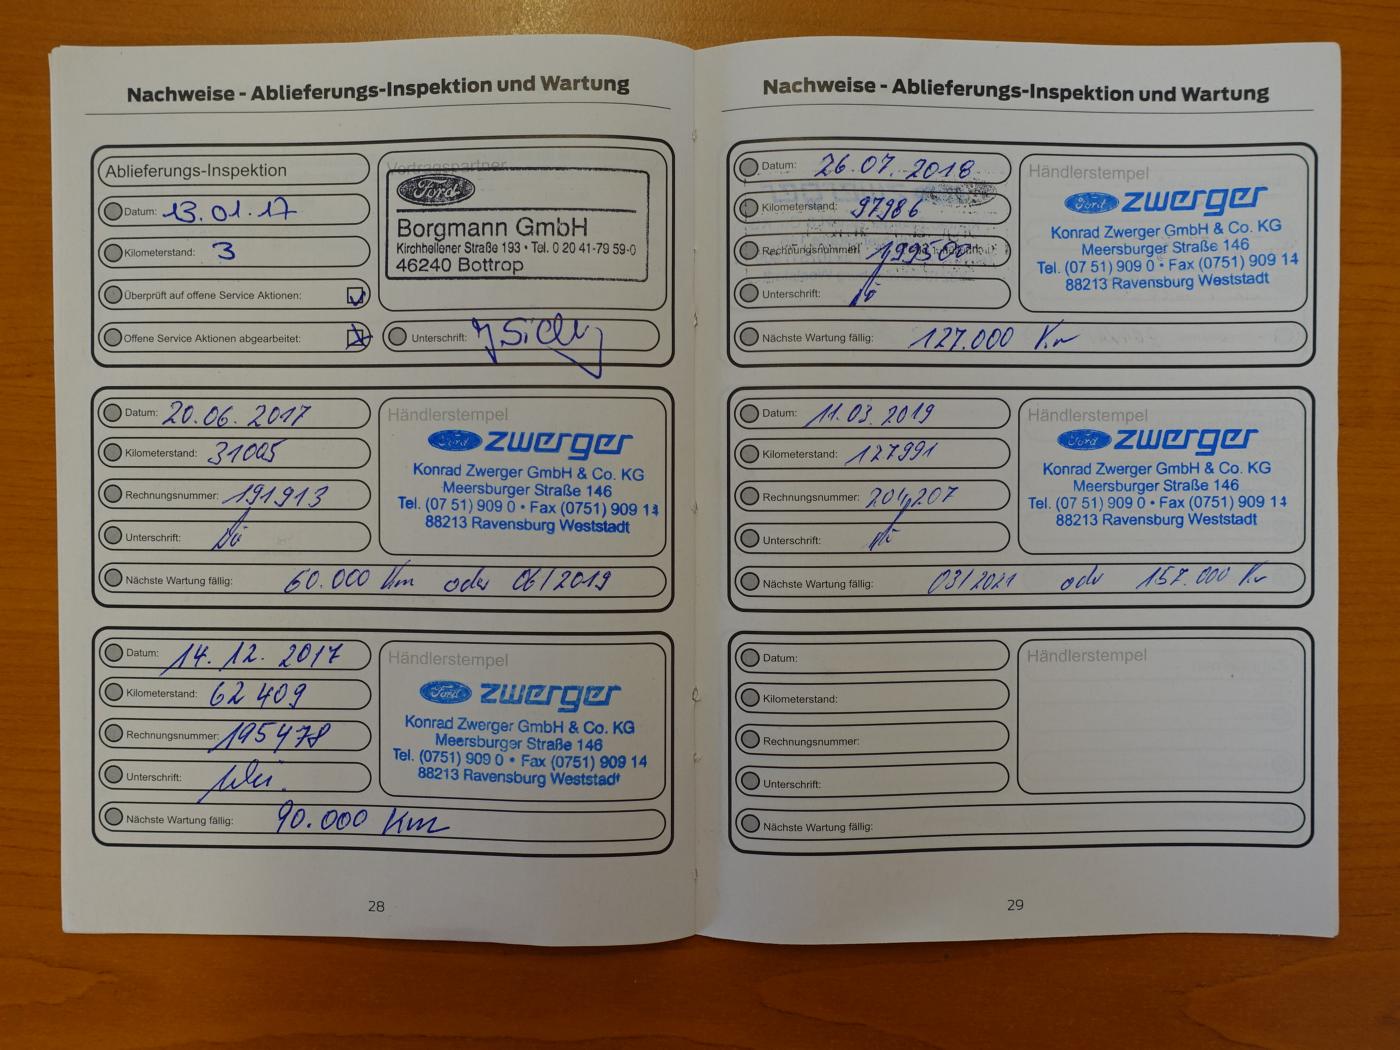 Nachweise - Ablieferungs-Inspektion und Wartung
Ablieferungs-Inspektion
Datum: 13.01.17
Kilometerstand: 3
Überprüft auf offene Service Aktionen:
Offene Service Aktionen abgearbeitet:
Vertragspartner
Ford
Borgmann GmbH
Kirchhellener Straße 193 • Tel. 0 20 41-79 59-0
46240 Bottrop
Unterschrift:
Datum: 20.06.2017
Kilometerstand: 31005
Rechnungsnummer: 191913
Unterschrift:
Nächste Wartung fällig: 60.000 Km oder 06/2019
Händlerstempel
Ford zwerger
Konrad Zwerger GmbH & Co. KG
Meersburger Straße 146
Tel. (07 51) 909 0 • Fax (0751) 909 14
88213 Ravensburg Weststadt
Datum: 14.12.2017
Kilometerstand: 62 409
Rechnungsnummer: 195478
Unterschrift:
Nächste Wartung fällig: 90.000 Km
Händlerstempel
Ford zwerger
Konrad Zwerger GmbH & Co. KG
Meersburger Straße 146
Tel. (0751) 909 0 • Fax (0751) 909 14
88213 Ravensburg Weststadt
28
Nachweise - Ablieferungs-Inspektion und Wartung
Datum: 26.07.2018
Kilometerstand: 97986
Rechnungsnummer: 199500
Unterschrift:
Nächste Wartung fällig: 127.000 Km
Händlerstempel
Ford zwerger
Konrad Zwerger GmbH & Co. KG
Meersburger Straße 146
Tel. (07 51) 909 0 • Fax (0751) 909 14
88213 Ravensburg Weststadt
Datum: 11.03.2019
Kilometerstand: 127991
Rechnungsnummer: 204207
Unterschrift:
Nächste Wartung fällig: 03/2021 oder 157.000 Km
Händlerstempel
Ford zwerger
Konrad Zwerger GmbH & Co. KG
Meersburger Straße 146
Tel. (07 51) 909 0 • Fax (0751) 909 14
88213 Ravensburg Weststadt
Datum:
Kilometerstand:
Rechnungsnummer:
Unterschrift:
Nächste Wartung fällig:
Händlerstempel
29